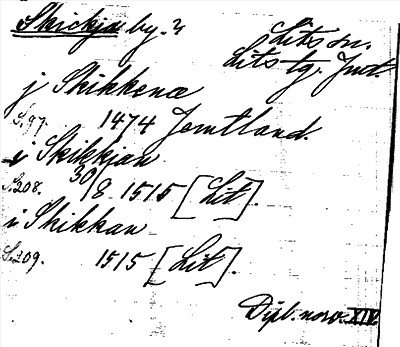 Skickja by. 2
Lits sn.
Lits tg. Jmt.
j Skikkenæ
S.97. 1474 Jemtland.
i Skikkjan
S.208. 30/8 1515 [Lit].
i Skikkan
S.209. 1515 [Lit].
Dipl. norv. XIV